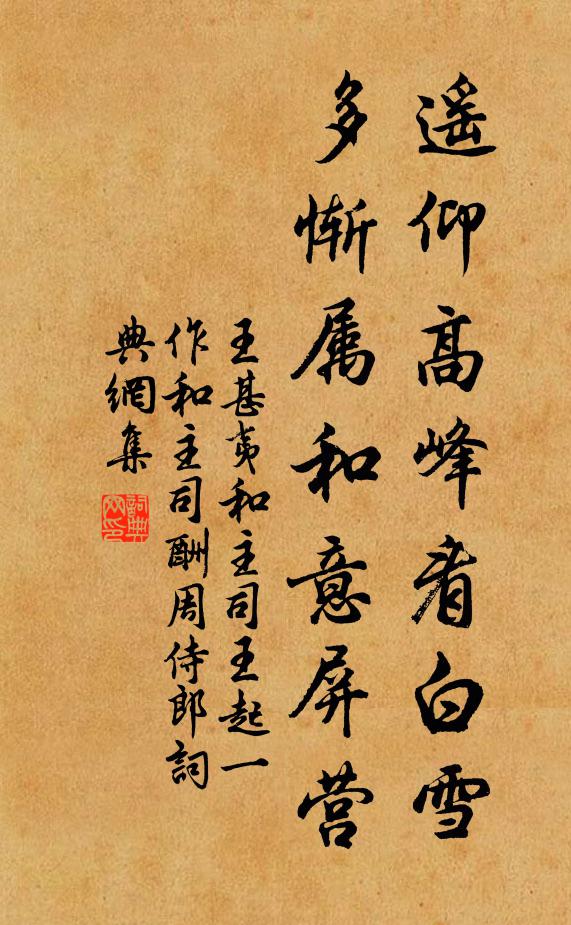 遥仰高峰看白雪
多惭属和意屏营
王甚夷和主司王起一
作和主司酬周侍郎詞
典網集
詞典网印